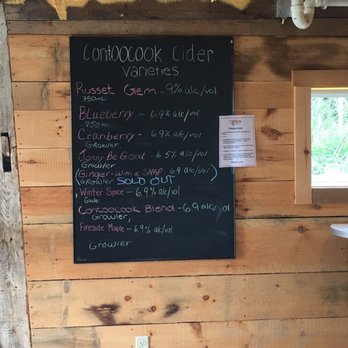 Contoocook Cider
varieties
Russet Gem - 9% alc/vol
750mL
Blueberry - 6.9% alc/vol
750mL
Cranberry - 6.9% alc/vol
Growler
Jonny Be Good - 6.5% alc/vol
Growler
(Ginger - with a SNAP 6.9 alc/vol)
Growler SOLD OUT
Winter Spice - 6.9% alc/vol
Contoocook Blend - 6.9 alc/vol
Growler,
Fireside Maple - 6.9% alc/vol
Growler
Please Note